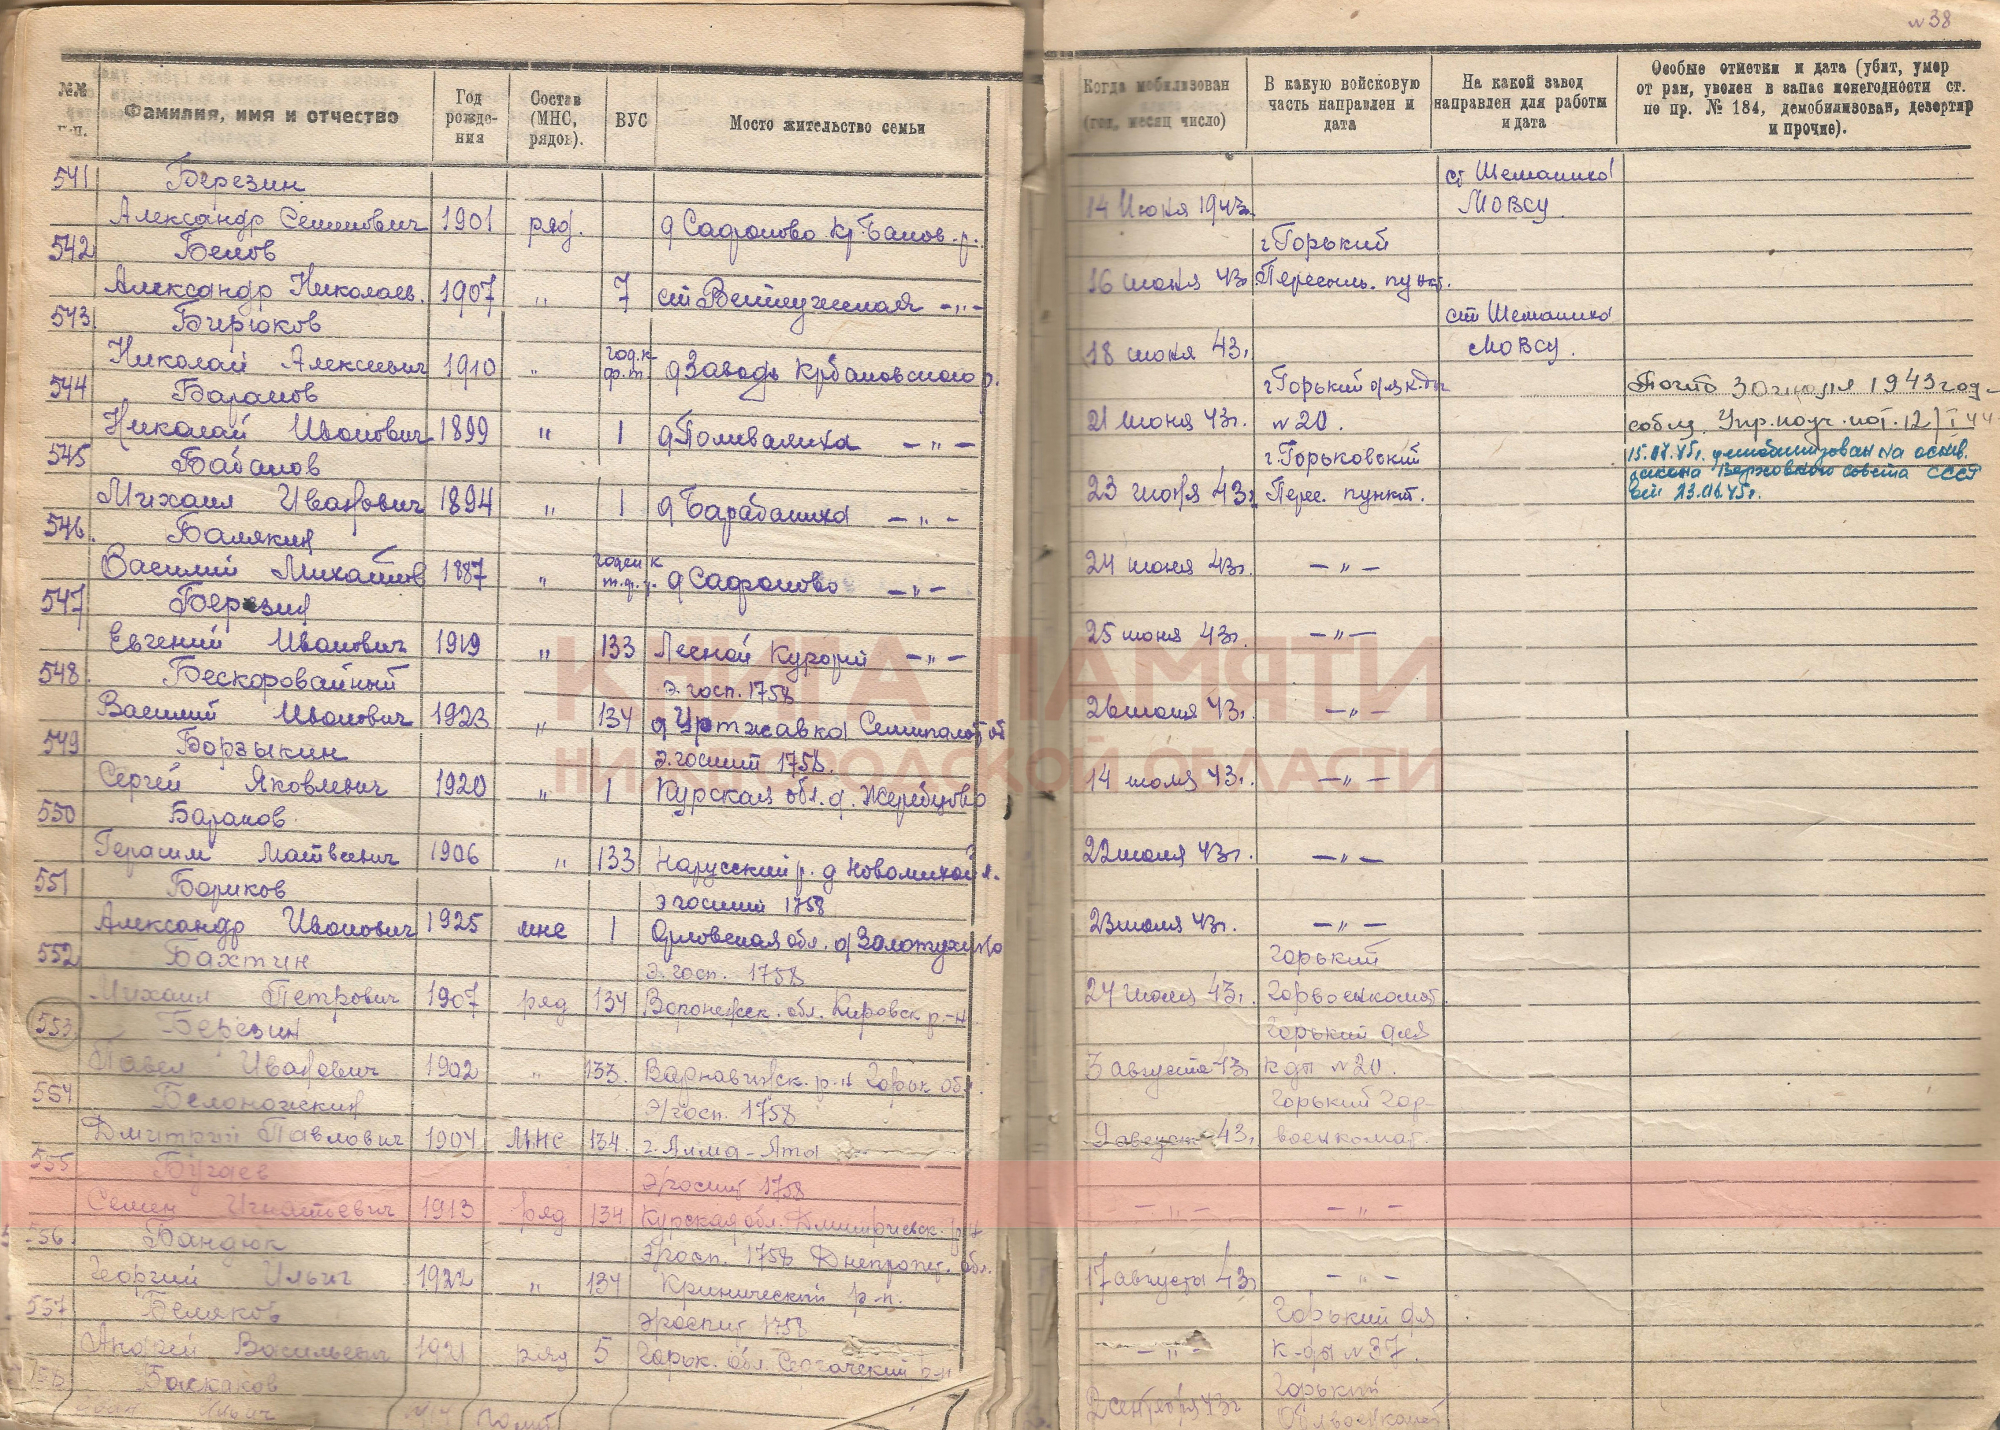 № 38
№№ п.п.
Фамилия, имя и отчество
Год рождения
Состав (МНС, рядов).
ВУС
Место жительство семьи
Когда мобилизован (год, месяц число)
В какую войсковую часть направлен и дата
На какой завод направлен для работы и дата
Особые отметки и дата (убит, умер от ран, уволен в запас по негодности ст. по пр. № 184, демобилизован, дезертир и прочие).
541 Березин ст Шеманиха
Александр Семенович 1901 ряд. д Сафоново Кр Баков. р. 14 Июня 1943 МОВСУ.
542 Белов г Горький
Александр Николаев. 1907 „ 7 ст Ветлужская —„— 16 июня 43 Пересыль. пункт.
543 Бирюков ст Шеманиха
Николай Алексеевич 1910 „ год. к ф. т. д Заводь Крбаковского р. 18 июня 43г МОВСУ.
544 Баранов г Горький для к-ды 30 1943 год
Николай Иванович 1899 „ 1 д Поливаниха —„— 21 июня 43г. № 20. 12/I 44
545 Бабанов г. Горьковский 15.07.45г. демобилизован на основ.
закона Верховного совета СССР
Михаил Иванович 1894 „ 1 д Барабаниха —„— 23 июня 43г Перес. пункт. от 23.06.45г.
546 Балякин
Василий Михайлов 1887 „ годен к т. ф. д Сафоново —„— 24 июня 43г. —„—
547 Березин
Евгений Иванович 1919 „ 133 Лесной Курорт —„— 25 июня 43г —„—
548 Бескоровайный Э. госп. 1758
Василий Иванович 1923 „ 134 д Уртжавка Семипалат об 26 июня 43г. —„—
549 Борзыкин Э. госпит 1758.
Сергей Яковлевич 1920 „ 1 Курская обл. д. Жеребцово 14 июля 43г. —„—
550 Баранов
Герасим Матвеевич 1906 „ 133 Нарусский р. д Новомихайл. 22 июля 43г. —„—
551 Бориков Э госпит 1758
Александр Иванович 1925 мнс 1 Орловская обл. д Золотухино 23 июля 43г. —„—
552 Бахтин Э. госп. 1758 Горький
Михаил Петрович 1907 ряд 134 Воронежск. обл. Кировск р-н 24 июля 43г. Горвоенкомат.
553 Березин Горький для
Павел Иванович 1902 „ 133. Варнавинск. р-н Горьк обл 3 августа 43г к-ды № 20.
554 Белоножкин Э/госп. 1758 Горький Гор-
Дмитрий Павлович 1904 МНС 134. г. Алма-Ата 9 август 43г. военкомат.
555 Бугаев Э/госпит 1758
Семен Игнатьевич 1913 ряд 134 Курская обл. Дмитриевск. р-н —„— —„—
556 Бандюк Э/госп. 1758 Днепропет. обл.
Георгий Ильич 1922 „ 134 Кринический р-н. 17 августа 43г —„—
557 Беляков Э/госпит 1758 Горький для
Андрей Васильевич 1921 ряд 5 Горьк. обл. Сергачский р-н —„— к-ды № 37.
558 Баскаков Горький
Иван Ильич 2 сентября 43г Облвоенкомат
КНИГА ПАМЯТИ
НИЖЕГОРОДСКОЙ ОБЛАСТИ